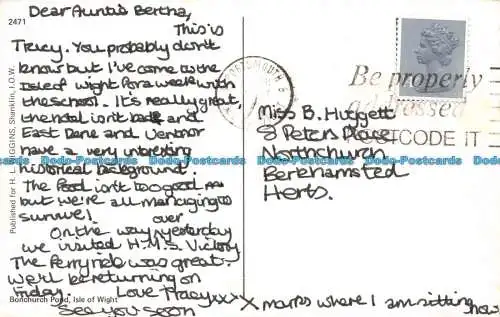 2471
Dear Auntie Bertha,
This is
Tracy. You probably don't
know but I've come to the
Isle of wight for a week with
the school. It's really great,
the hotel isn't bad and
East Dene and Ventnor
have a very interesting
historical background.
The food isn't too good
but we're all managing to
survive!
over
On the way, yesterday
we visited H.M.S Victory
The Ferry ride was great.
we'll be returning on
Friday. Love Tracy xxxx
See you soon
X marks where I am sitting
now
Bonchurch Pond, Isle of Wight
Published for H. L. HIGGINS, Shanklin, I.O.W.
PORTSMOUTH
Be properly
addressed
POSTCODE IT
Miss B. Huggett
8 Peters Place
Northchurch
Berkhamsted
Herts.
Dodo-Postcards Dodo-Postcards Dodo-Postcards Dodo-Postcards Dodo-Postcards